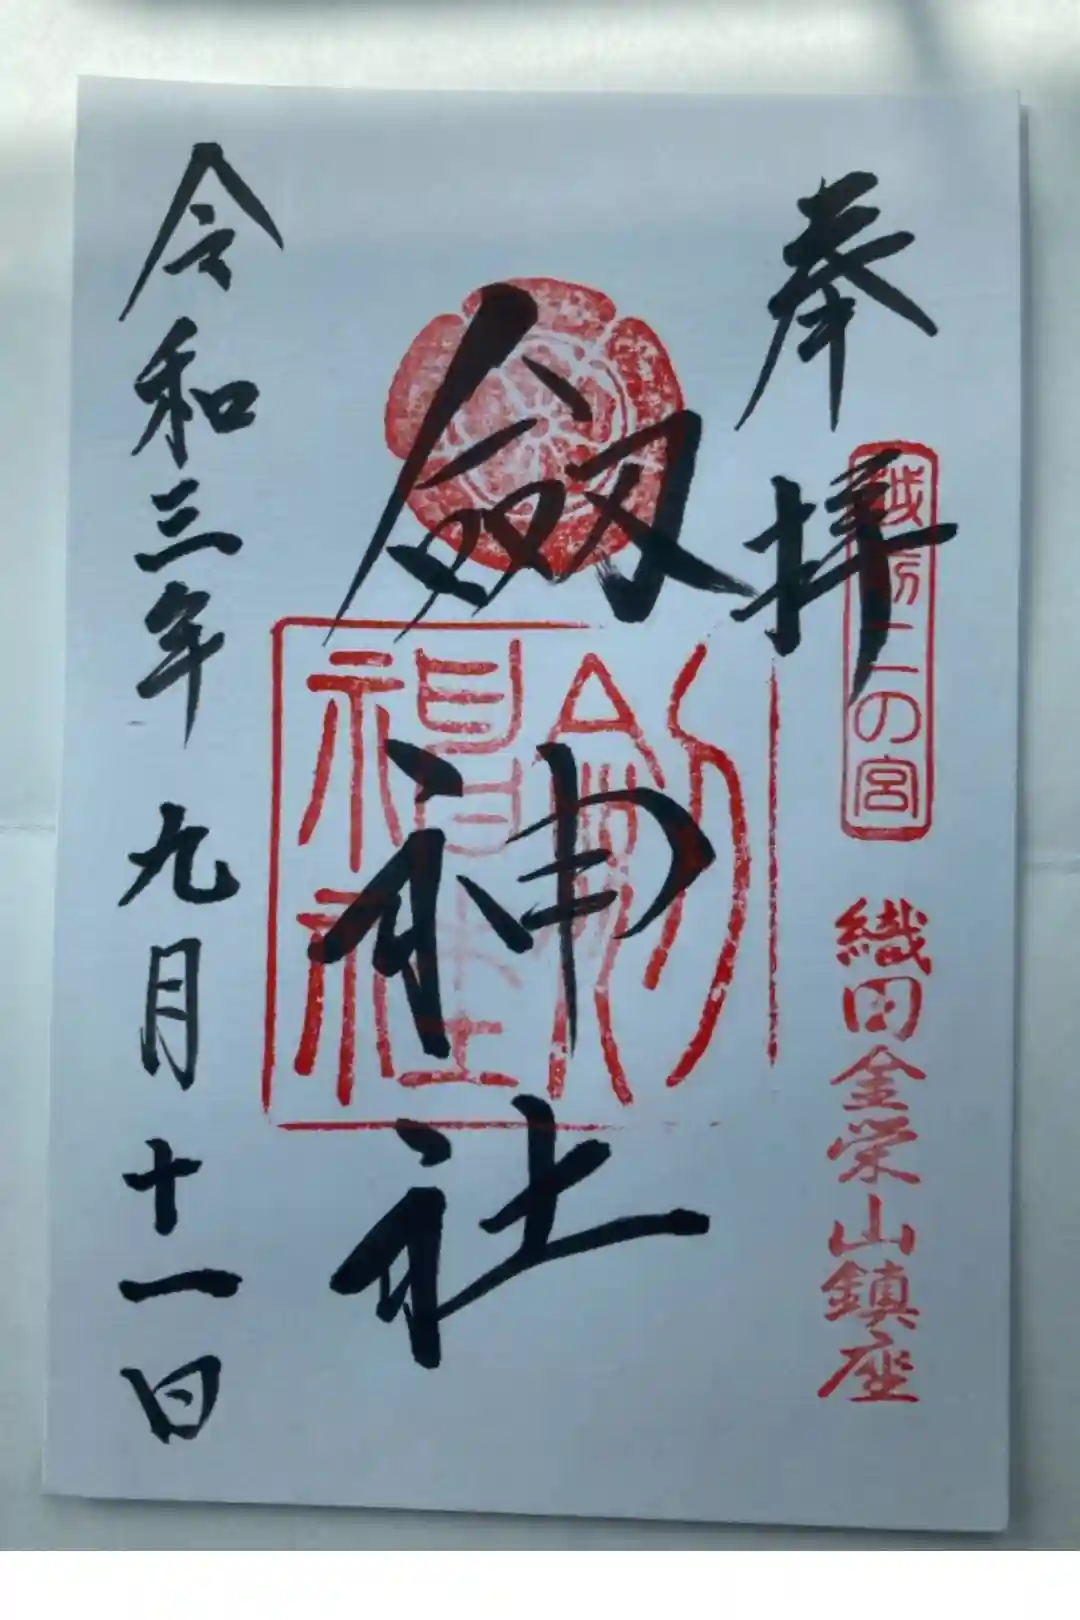 奉拝
越前二の宮
織田金栄山鎮座
劔神社
劔神社
令和三年 九月 十一日